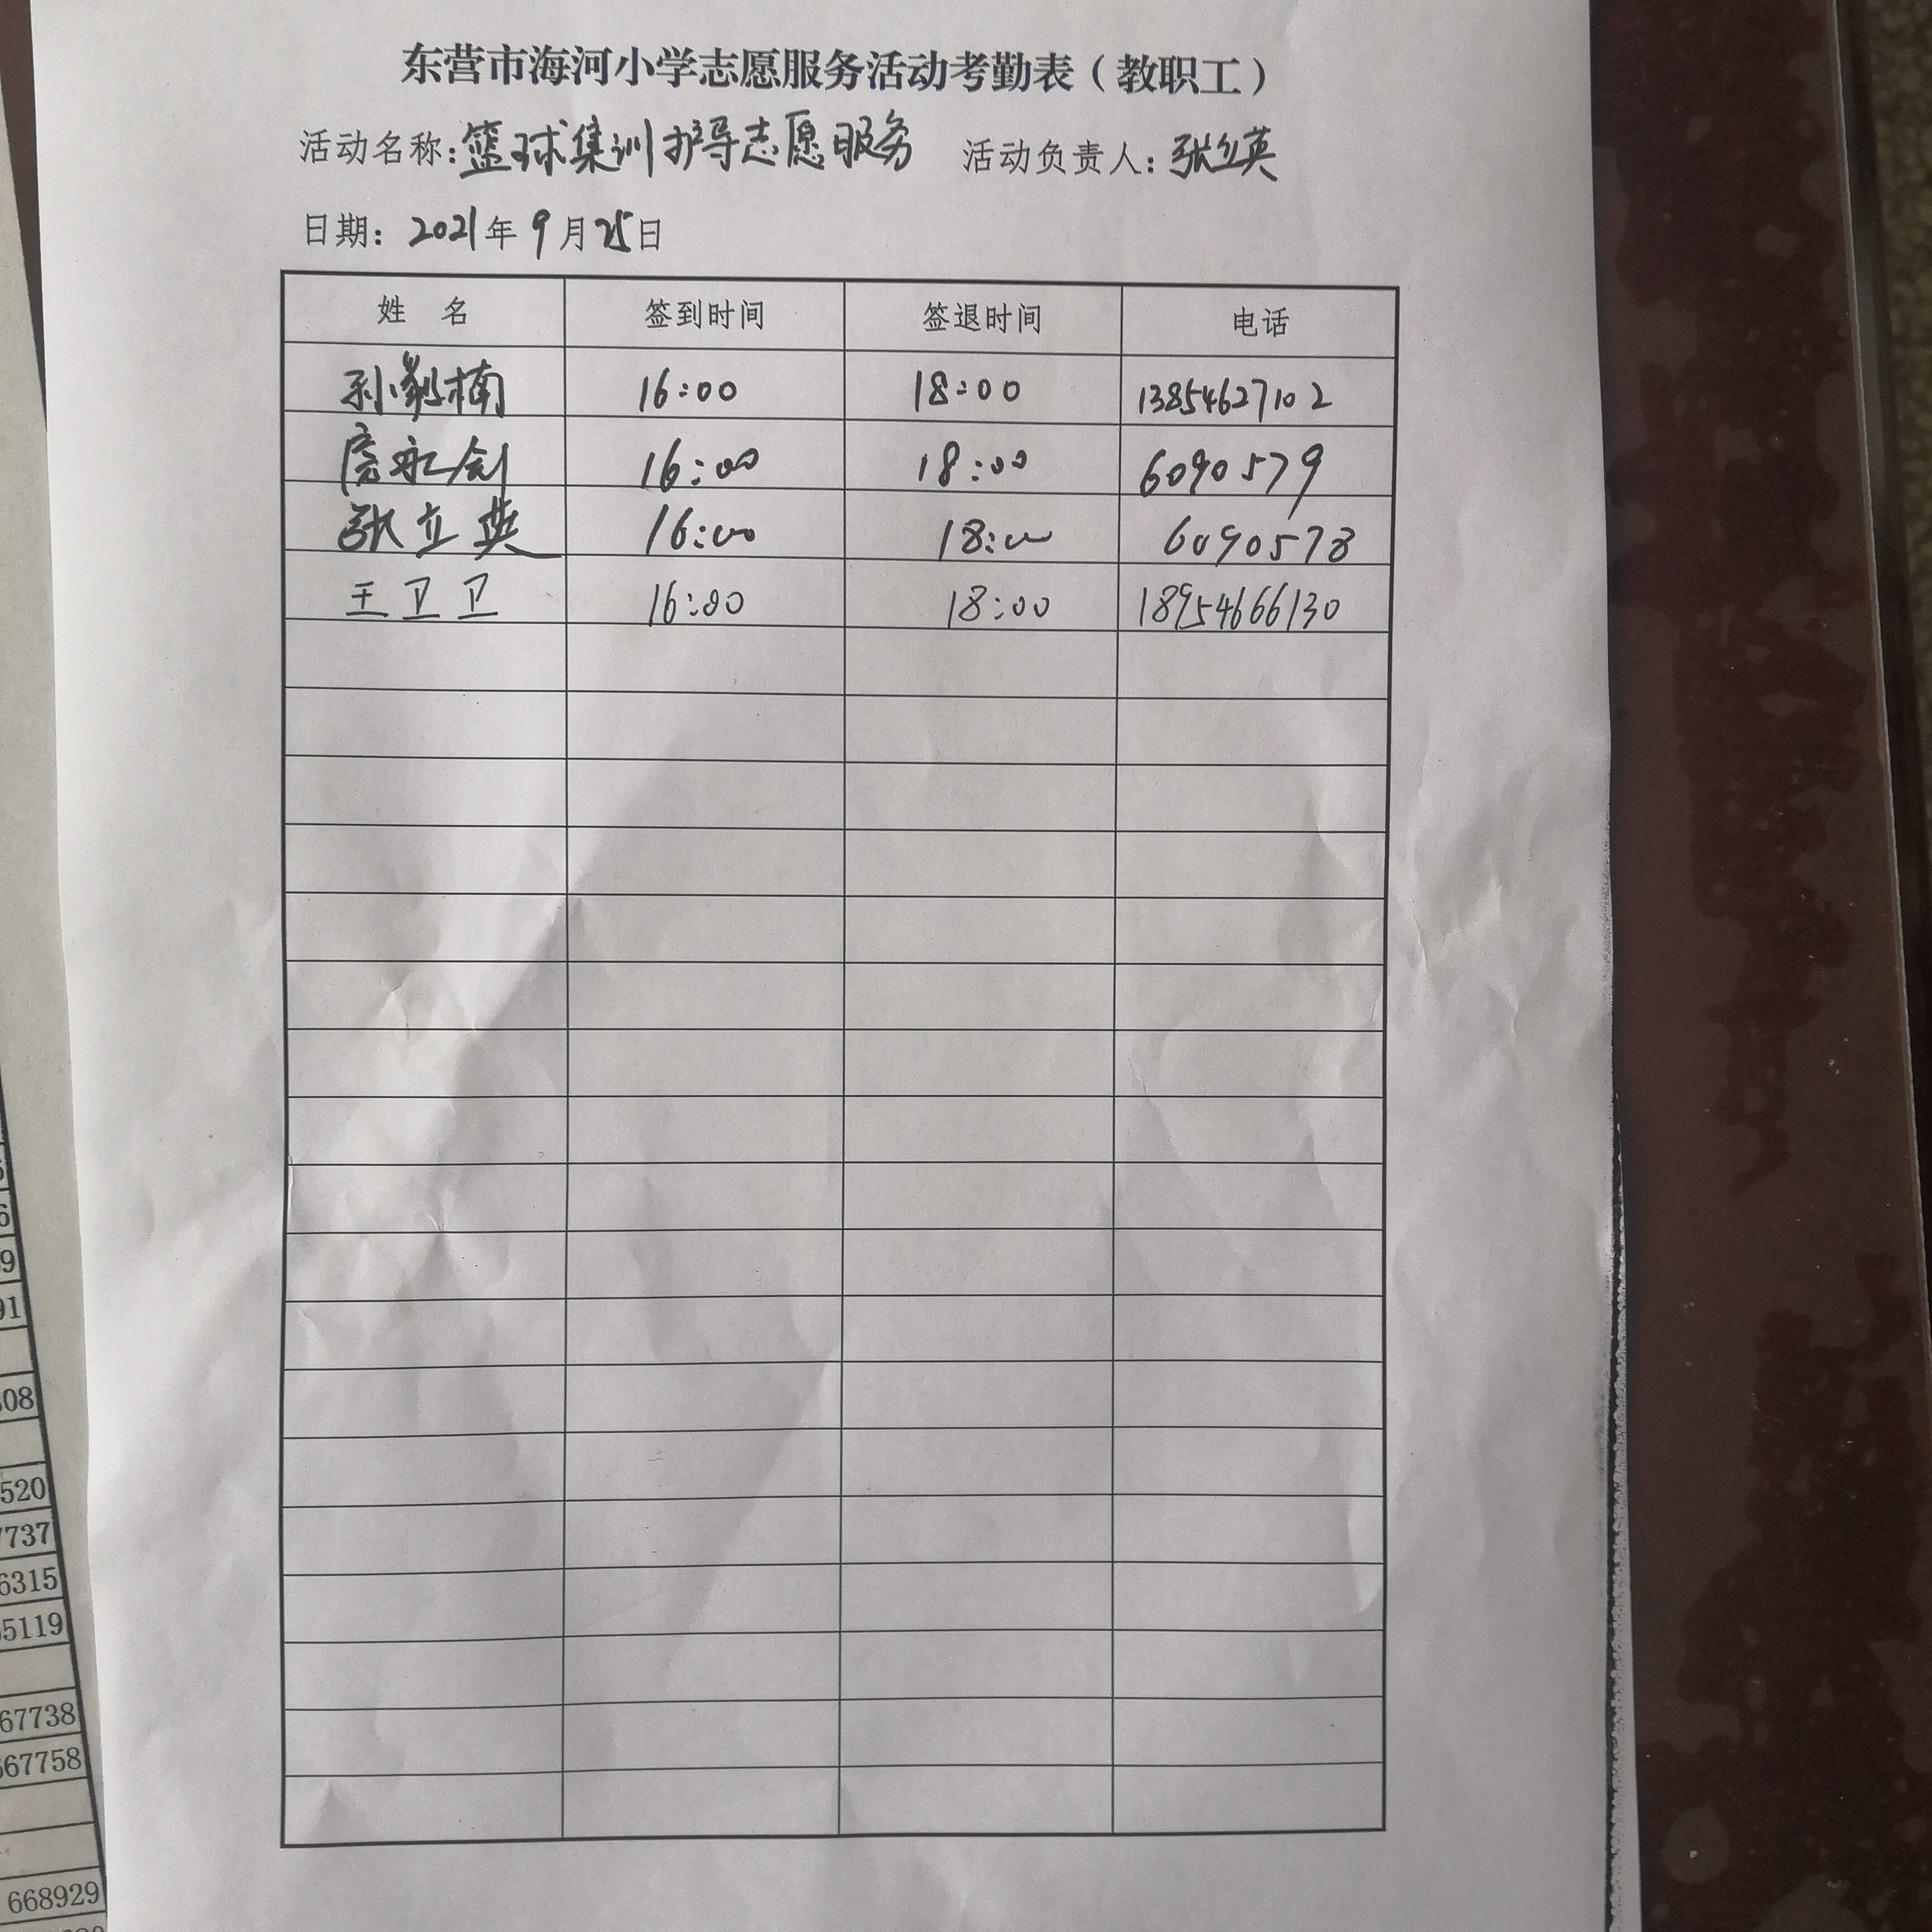 东营市海河小学志愿服务活动考勤表（教职工）
活动名称：篮球集训护导志愿服务 活动负责人：张立英
日期：2021年9月25日
姓 名 签到时间 签退时间 电话
16:00 18:00 13854627102
房永剑 16:00 18:00 6090579
张立英 16:00 18:00 6090578
王卫卫 16:00 18:00 18954666130
6
9
91
08
520
7737
6315
5119
67738
667758
668929